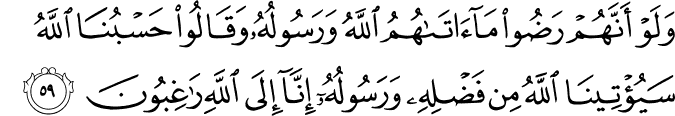 وَلَوۡ أَنَّهُمۡ رَضُواْ مَآ ءَاتَىٰهُمُ ٱللَّهُ وَرَسُولُهُۥ وَقَالُواْ حَسۡبُنَا ٱللَّهُ
سَيُؤۡتِينَا ٱللَّهُ مِن فَضۡلِهِۦ وَرَسُولُهُۥٓ إِنَّآ إِلَى ٱللَّهِ رَٰغِبُونَ ٥٩